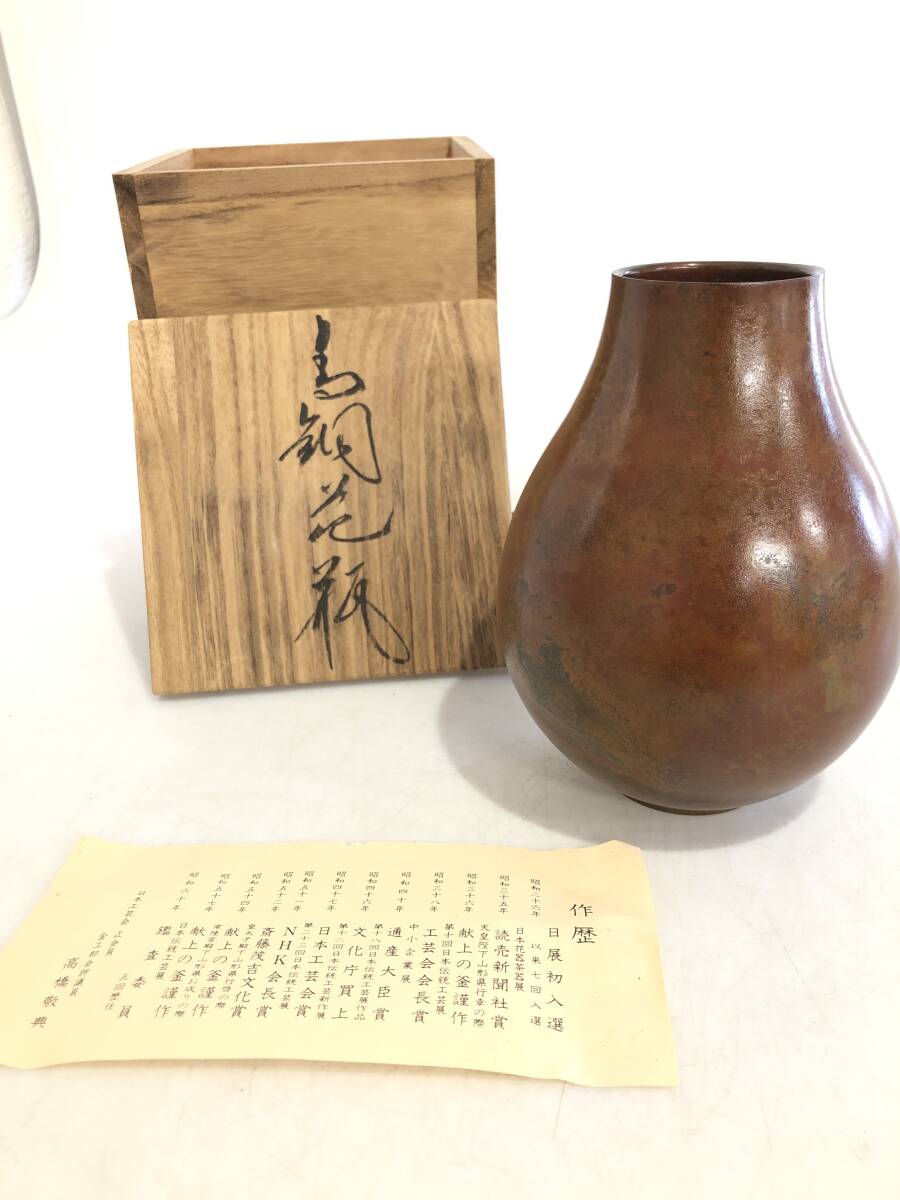 青銅花瓶
作歴
昭和二十六年 日展初入選
以来七回入選
昭和三十五年 日本花器茶器展
読売新聞社賞
昭和三十六年 天皇陛下山形県行幸の際
献上の釜謹作
昭和三十八年 第十回日本伝統工芸展
工芸会会長賞
昭和四十年 中小企業展
通産大臣賞
昭和四十六年 第十八回日本伝統工芸展作品
文化庁買上
昭和四十七年 第十二回日本伝統工芸新作展
日本工芸会賞
昭和五十一年 第二十三回日本伝統工芸展
NHK会長賞
昭和五十二年 斎藤茂吉文化賞
昭和五十四年 皇太子殿下山形県行啓の際
献上の釜謹作
昭和五十七年 常陸宮殿下山形県お成りの際
献上の釜謹作
昭和六十年 日本伝統工芸展
鑑査委員
五回歴任
日本工芸会 正会員
金工部会評議員
高橋敬典